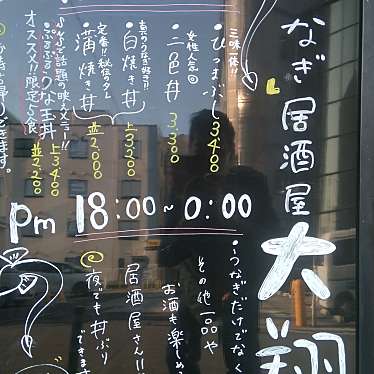 なぎ居酒屋大翔
三味一体!!
・ひつまぶし 3400
女性人気◎
・二色丼 3300
真のうなぎ好き!!
・白焼き丼 上3200
定番!!秘伝のタレ
・蒲焼き丼 並2000
SNSで話題の映えメニュー!!
ぷるぷるうな玉丼 上3400
オススメ!!限定6食 並2200
できます。
Pm 18:00~0:00
・うなぎだけでなく
その他一品や
お酒も楽しめ
居酒屋さん!!
夜でも丼ぶり
できます